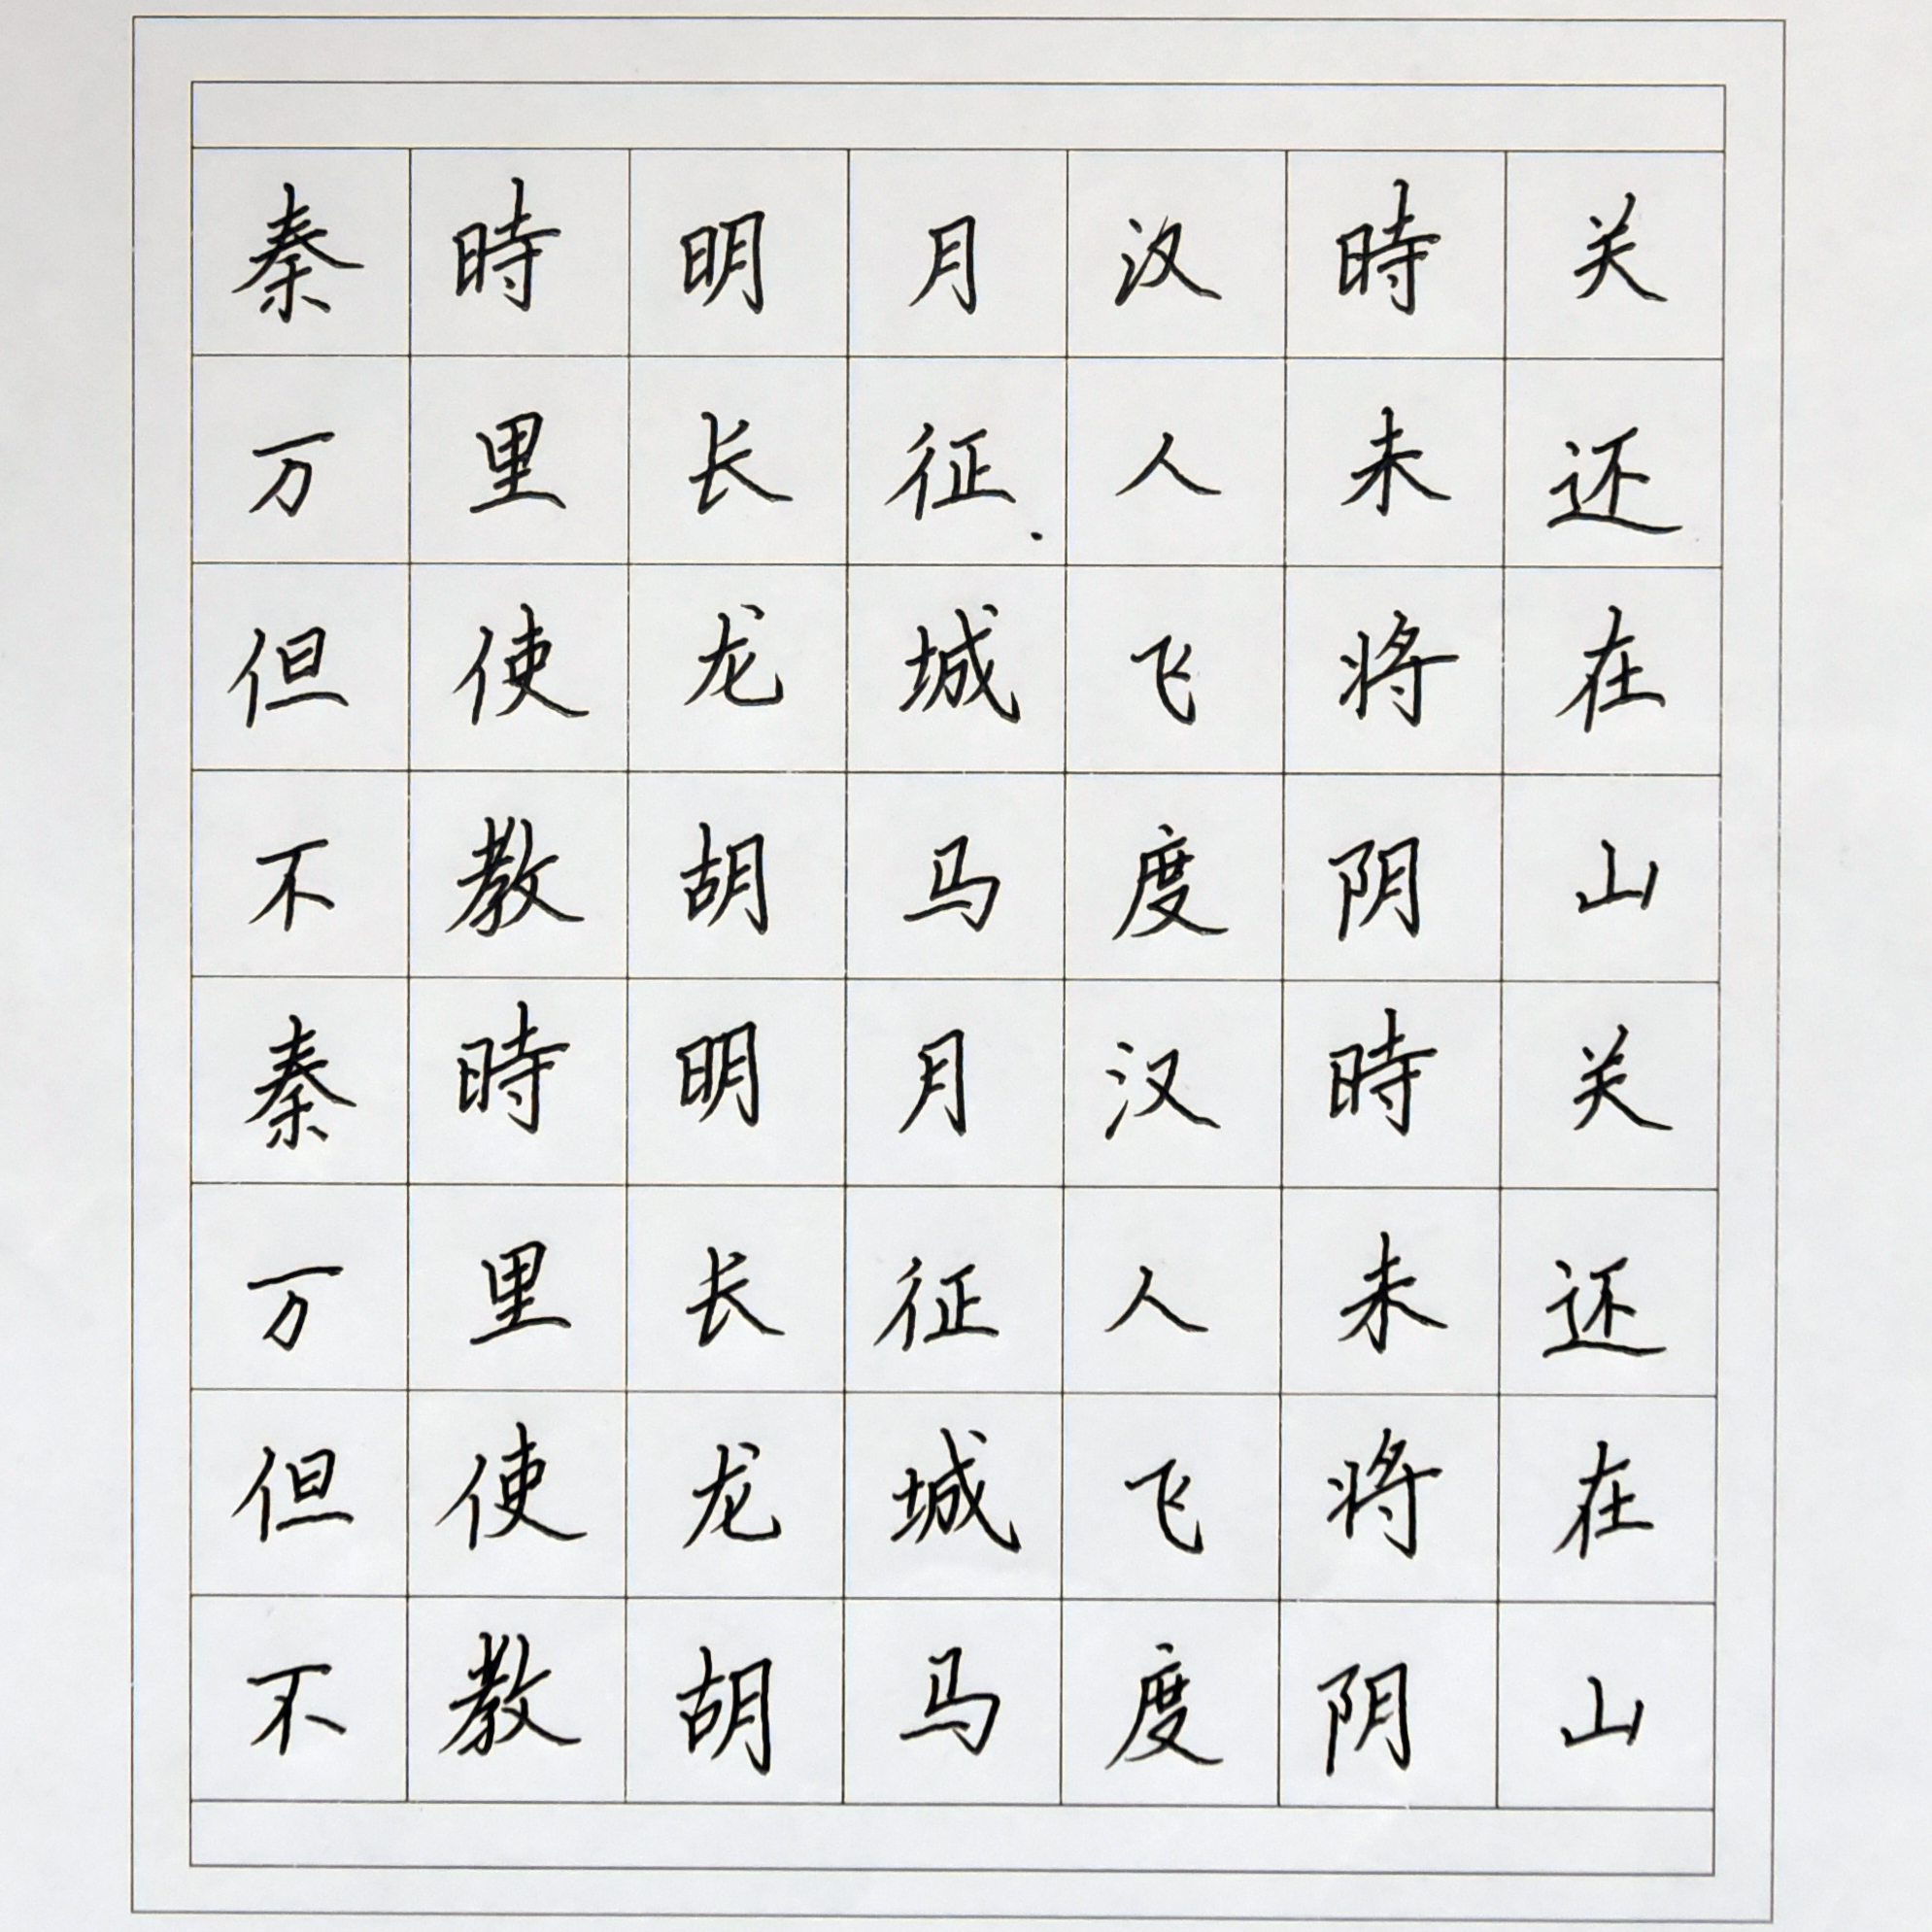 秦時明月汉時关
万里长征人未还
但使龙城飞将在
不教胡马度阴山
秦時明月汉時关
万里长征人未还
但使龙城飞将在
不教胡马度阴山